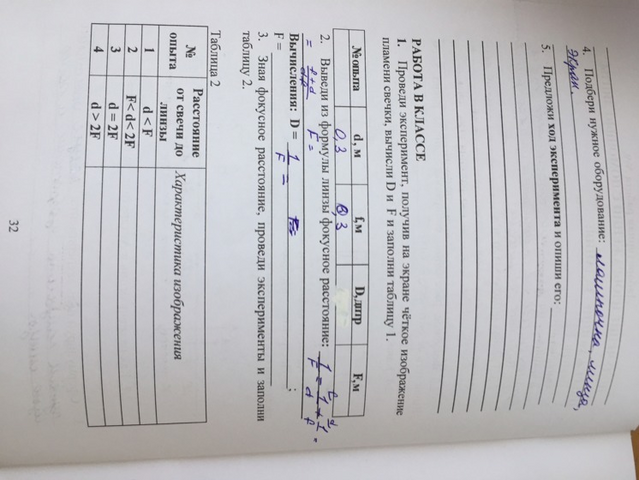 4. Подбери нужное оборудование: лампочка, линза,
экран
5. Предложи ход эксперимента и опиши его:
РАБОТА В КЛАССЕ
1. Проведи эксперимент, получив на экране чёткое изображение
пламени свечки, вычисли D и F и заполни таблицу 1.
№ опыта d, м f, м D, дптр F, м
0,3 0,3
2. Выведи из формулы линзы фокусное расстояние: 1/F = 1/d + 1/f =
= f+d/df F =
Вычисления: D = 1/F = ;
F =
3. Зная фокусное расстояние, проведи эксперименты и заполни
таблицу 2.
Таблица 2
№ опыта Расстояние от свечи до линзы Характеристика изображения
1 d < F
2 F< d < 2F
3 d = 2F
4 d > 2F
32